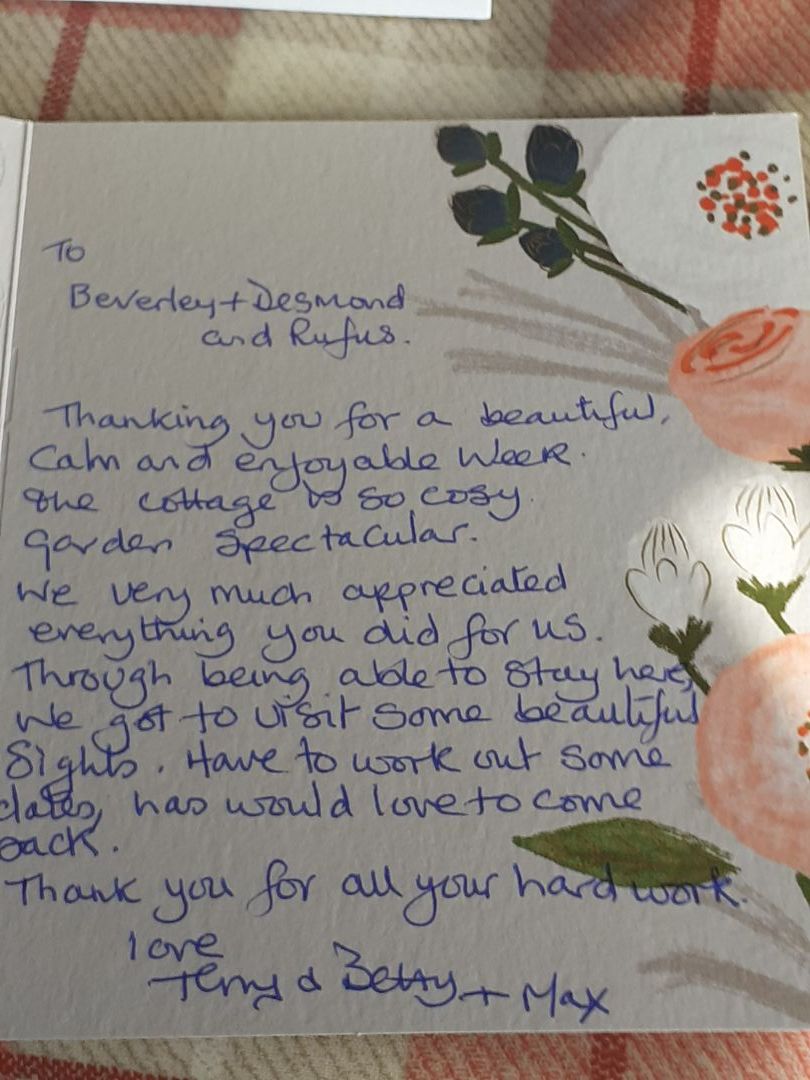 To
Beverley + Desmond
and Rufus.
Thanking you for a beautiful,
Calm and enjoyable Week.
the cottage is so cosy.
garden spectacular.
We very much appreciated
everything you did for us.
Through being able to stay here,
we got to visit some beautiful
Sights. Have to work out some
dates, has would love to come
back.
Thank you for all your hard work.
love
Terry & Betty + Max